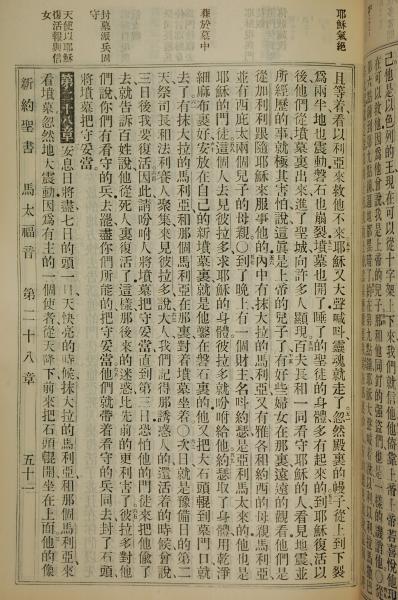 己他是以色列的王現在可以從十字架上下來我們就信他他倚靠上帝上帝若喜悅他
耶穌氣絕
葬於墓中
封墓派兵固守
天使以耶穌復活報與信女
且等着看以利亞來救他不來耶穌又大聲喊叫靈魂就走了忽然殿裏的幔子從上到下裂
爲兩半地也震動磐石也崩裂墳墓也開了睡了的聖徒的身體多有起來的到耶穌復活以
後他們從墳墓裏出來進了聖城向許多人顯現百夫長和一同看守耶穌的人看見地震並
所經歷的事就極其害怕說這眞是上帝的兒子了有好些婦女在那裏遠遠的觀看他們是
從加利利跟隨耶穌來服事他的內中有抹大拉的馬利亞又有雅各和約西的母親馬利亞
並有西庇太兩個兒子的母親〇到了晚上有一個財主名叫約瑟是亞利馬太來的他也是
耶穌的門徒這個人去見彼拉多求耶穌的身體彼拉多就吩咐給他約瑟取了身體用乾淨
細麻布裹好安放在自己的新墳墓裏就是他鑿在磐石裏的他又把大石頭輥到墓門口就
去了有抹大拉的馬利亞和那個馬利亞在那裏對着墳墓坐着〇次日就是豫備日的第二
天祭司長和法利賽人聚集來見彼拉多說大人我們記得那誘惑人的還活着的時候曾說
三日後我要復活因此請吩咐人將墳墓把守妥當直到第三日恐怕他的門徒來把他偷了
去就告訴百姓說他從死人裏復活了這樣那後來的迷惑比先前的更利害了彼拉多對他
們說你們有看守的兵去罷盡你們所能的把守妥當他們就帶着看守的兵同去封了石頭
將墳墓把守妥當
第二十八章安息日將盡七日的頭一日天快亮的時候抹大拉的馬利亞和那個馬利亞來
看墳墓忽然地大震動因爲有主的一個使者從天降下前來把石頭輥開坐在上面他的像
新約聖書 馬太福音 第二十八章 五十二